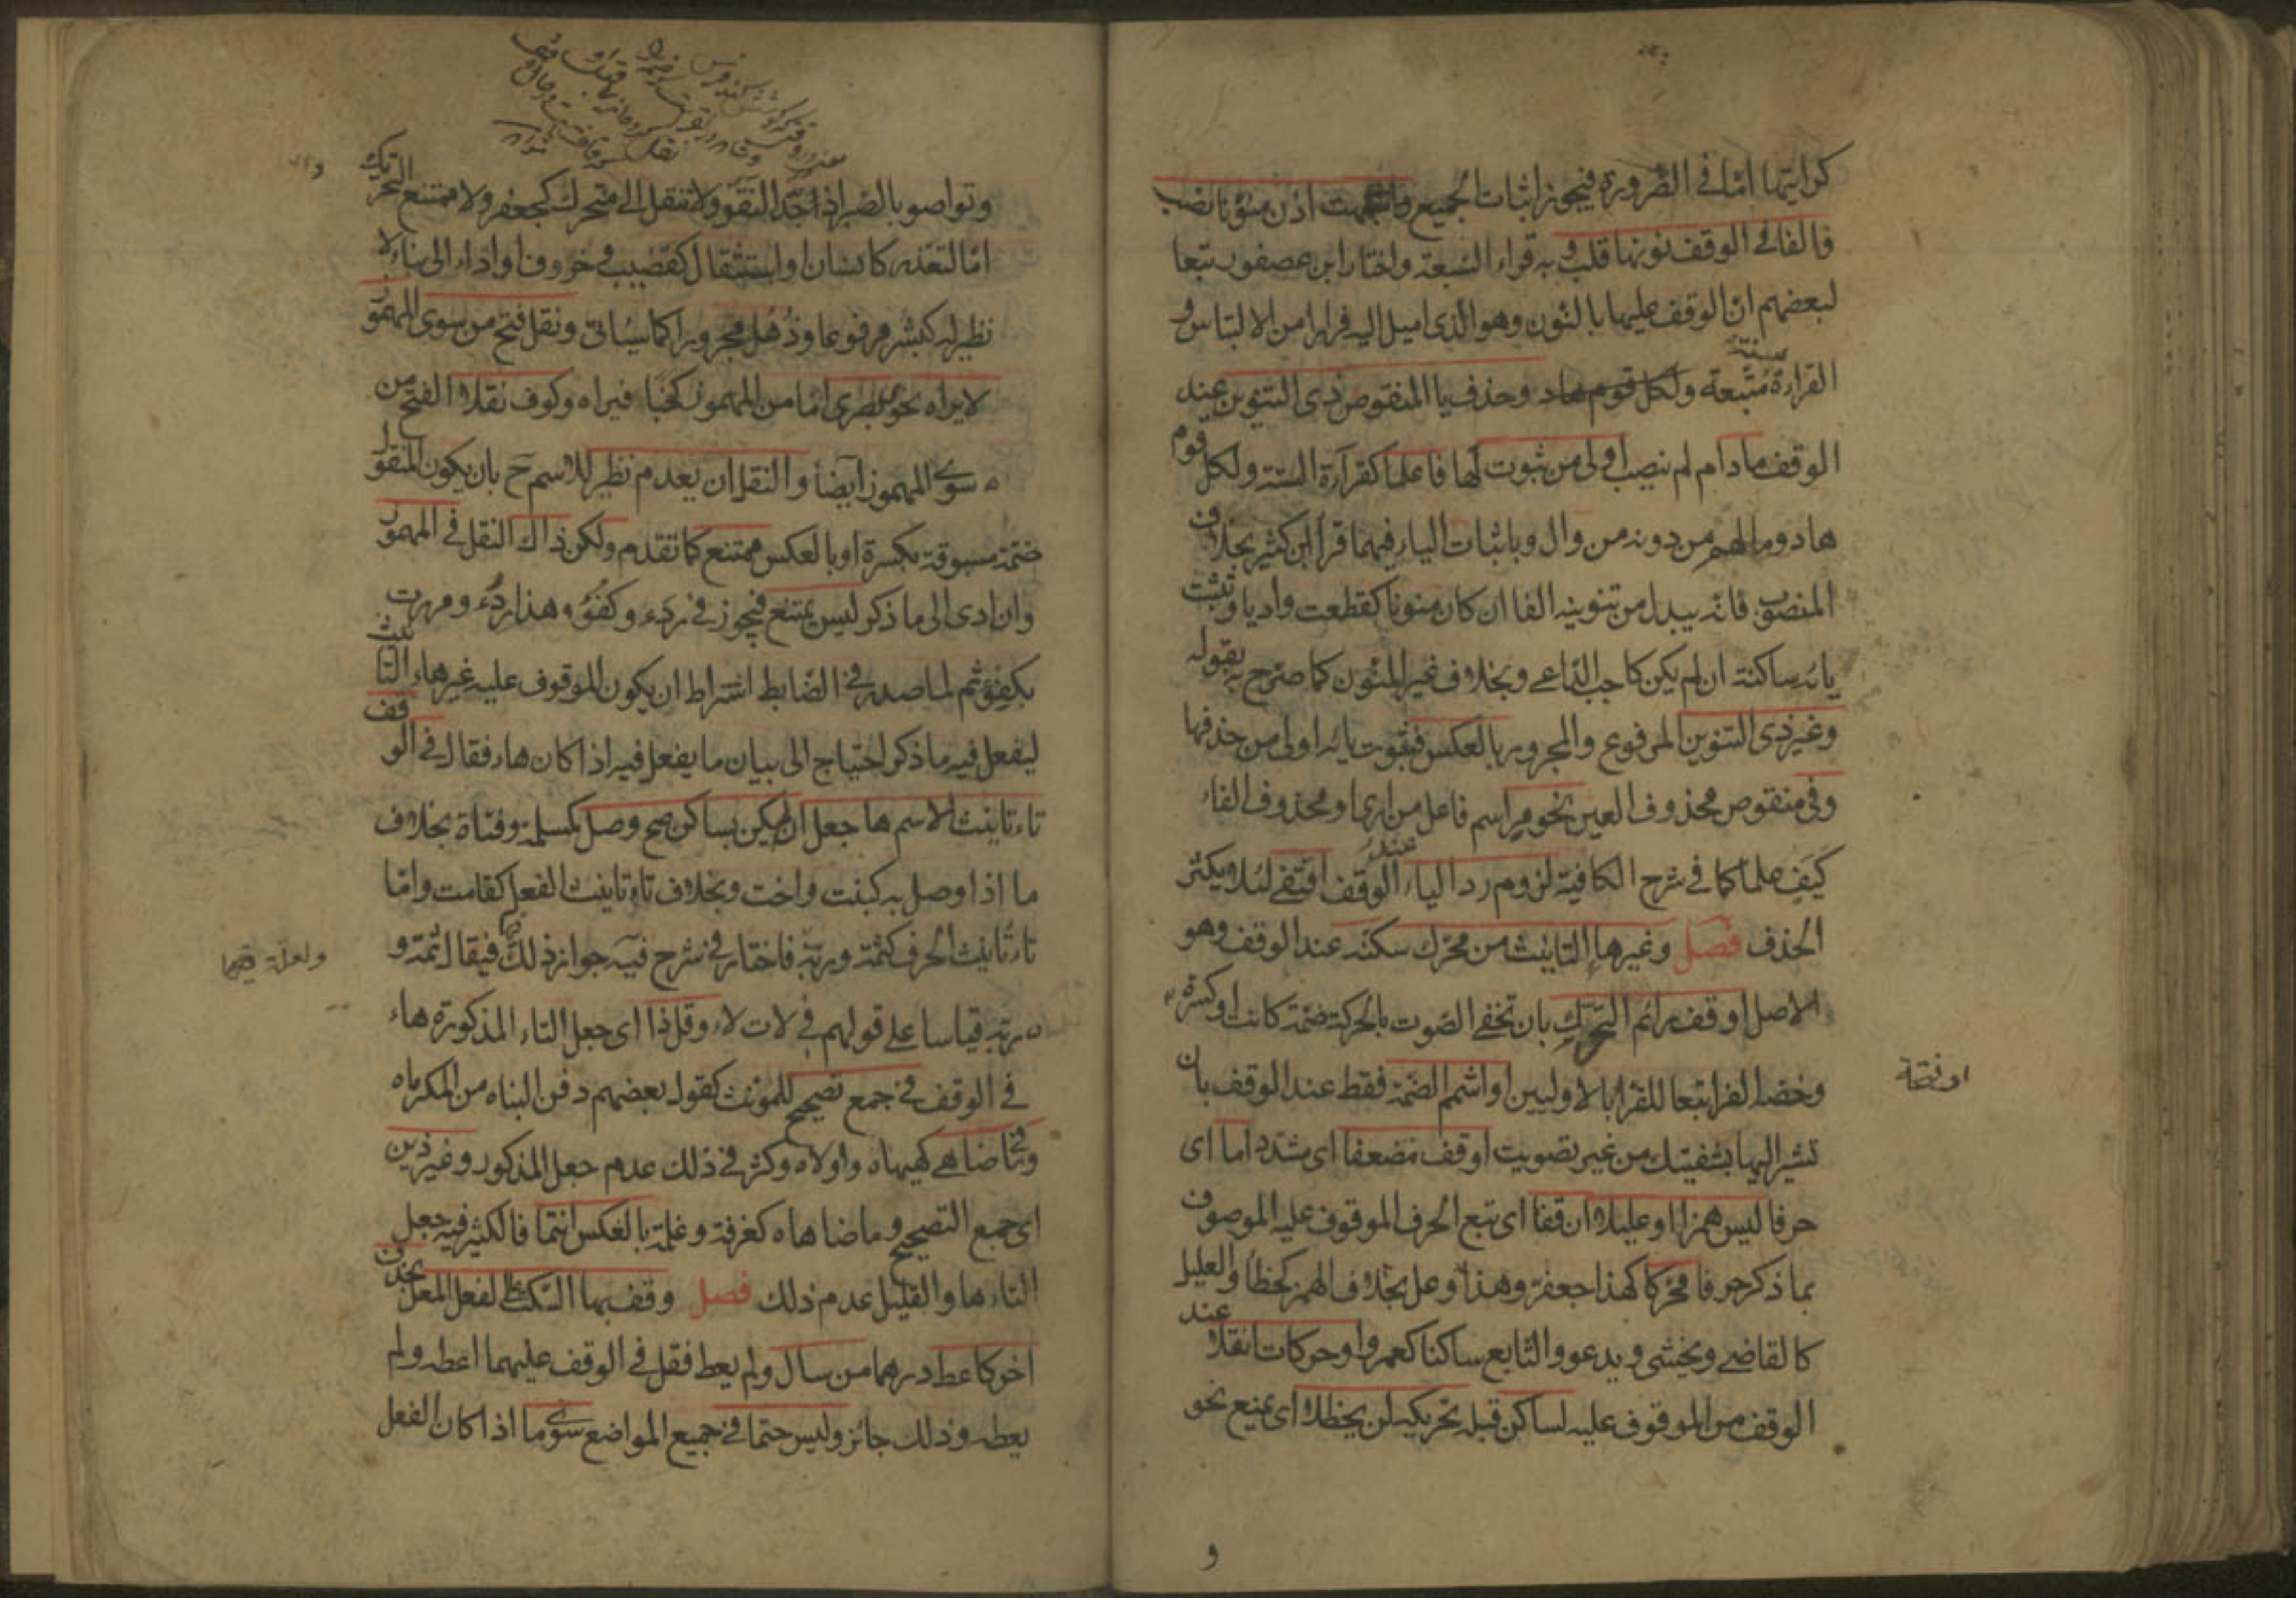 كرايتها امّا في الضّرورة فيجوز اثبات الجميع واشبهت اذن منوّنا نصب
فالفا في الوقف نونها قلب وبه قراء السّبعة واختار ابن عصفور تبعا
لبعضهم انّ الوقف عليها بالنّون وهو الذي اميل اليه فرارا من الالتباس و
القراءة سنة متّبعة وحذف يا المنقوص ذي التنوين عند
الوقف مادام لم ينصب اولى من ثبوت لها فاعلما كقراءة الستة ولكلّ قوم
هاد وما لهم من دونه من وال وباثبات الياء فيهما قرأ ابن كثير بخلاف
المنصوب فانّه يبدل من تنوينه الفا ان كان منونا كقطعت واديا وتثبت
يائه ساكنة ان لم يكن كاجب الدّاعي وبخلاف غير المنّون كما صرّح به بقوله
وغير ذي التنوين المرفوع والمجرور بالعكس فثبوت يائه اولى من حذفها
وفي منقوص محذوف العين نحو مر اسم فاعل من ارى او محذوف الفاء
كيَفي علما كما في شرح الكافية لزوم ردّ الياء عند الوقف اقتفي لئلا يكثر
الحذف فصل وغيرها التانيث من محرّك سكّنه عند الوقف وهو
الاصل او قف رائم التّحرّك بان تخفي الصّوت بالحركة ضمّة كانت او كسرة
او فتحة
وخصّه الفرا تبعا للقرّاء بالاولين او اشمم الضّمّة فقط عند الوقف بان
تشير اليها بشفتيك من غير تصويت او قف مضعفا اى مشدّدا ما اى
حرفا ليس همزا او عليلا ان قفا اى تبع الحرف الموقوف عليه الموصوف
بما ذكر حرفا محرّكا كهذا جعفرّ وهذا وعلّ بخلاف الهمز كخطأ والعليل
كالقاضي ويخشى ويدعو والتابع ساكنا كعمرو او حركات انقلا عند
الوقف من الموقوف عليه لساكن قبله تحريكه لن يحظلا اى يمنع نحو
و
وتواصوا بالصّبر اذ اجّد النّقر ولا تنقل الى متحرك كجعفر ولا ممتنع التحريك
امّا لتعذّر كانسان او استثقال كقضيب وخروف او اداء الى بناء لا
نظير له كبشر مرفوعا وذهل مجرورا كما سيأتي ونقل فتح من سوى المهموز
لا يراه نحوي بصري امّا من المهموز كخبا فيراه وكوف نقلا الفتح من
سوى المهموز ايضا والنقل ان يعدم نظير للاسم ح بان يكون المنقول
ضمّة مسبوقة بكسرة او بالعكس ممتنع كما تقدم ولكن ذاك النقل في المهموز
وان ادى الى ما ذكر ليس يمتنع فيجوز في ردء وكفؤ هذا ردء ومررت
بكفؤ ثم لما صدر في الضّابط اشتراط ان يكون الموقوف عليه غير هاء التانيث
ليفعل فيه ما ذكر احتياج الى بيان ما يفعل فيه اذا كان هاء فقال في الوقف
تاء تانيث الاسم ها جعل ان لم يكن بساكن صح وصل كمسلمة وفتاة بخلاف
ما اذا وصل به كبنت واخت وبخلاف تاء تانيث الفعل كقامت وامّا
تاء تانيث الحرف كثمّة وربّة فاختار في شرح فيه جواز ذلك فيقال ثمّة و
ربّه قياسا على قولهم في لات لاه وقلّ ذا اى جعل التاء المذكورة هاء
في الوقف في جمع تصحيح للمونث كقول بعضهم دفن البناه من المكرماه
وما ضاهى كهيهاه واولاه وكثر في ذلك عدم جعل المذكور وغير ذين
اى جمع التصحيح وما ضاهاه كغرفة وغلمة بالعكس انتمى فالكثير فيه جعل
التاء ها والقليل عدم ذلك فصل وقف بها السّكت على الفعل المعلّ بحذف
اخر كاعط درهما من سال ولم يعط فقل في الوقف عليهما اعطه ولم
يعطه وذلك جائز وليس حتما في جميع المواضع سوى ما اذا كان الفعل